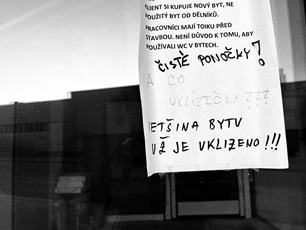 KLIENT SI KUPUJE NOVÝ BYT, NE
POUŽITÝ BYT OD DĚLNÍKŮ.
PRACOVNÍCI MAJÍ TOIKU PŘED
STAVBOU. NENÍ DŮVOD K TOMU, ABY
POUŽÍVALI WC V BYTECH.
ČISTÉ PONOŽKY?!
A CO
UKLÍZEČKY ???
VĚTŠINA BYTU
UŽ JE UKLIZENO!!!